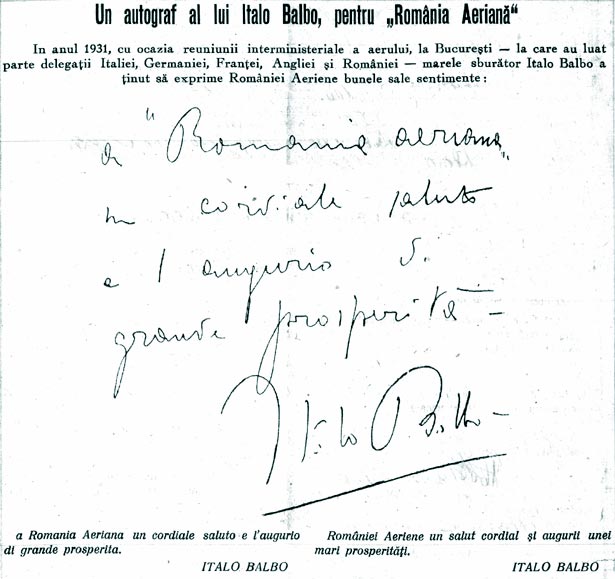 Un autograf al lui Italo Balbo, pentru „România Aeriană“
In anul 1931, cu ocazia reuniunii interministeriale a aerului, la București — la care au luat
parte delegații Italiei, Germaniei, Franței, Angliei și României — marele sburător Italo Balbo a
ținut să exprime României Aeriene bunele sale sentimente :
a "Romania aeriana„
un cordiale saluto
e l augurio di
grande prosperità —
Italo Balbo —
a Romania Aeriana un cordiale saluto e l'augurio
di grande prosperita.
ITALO BALBO
României Aeriene un salut cordial și augurii unei
mari prosperități.
ITALO BALBO